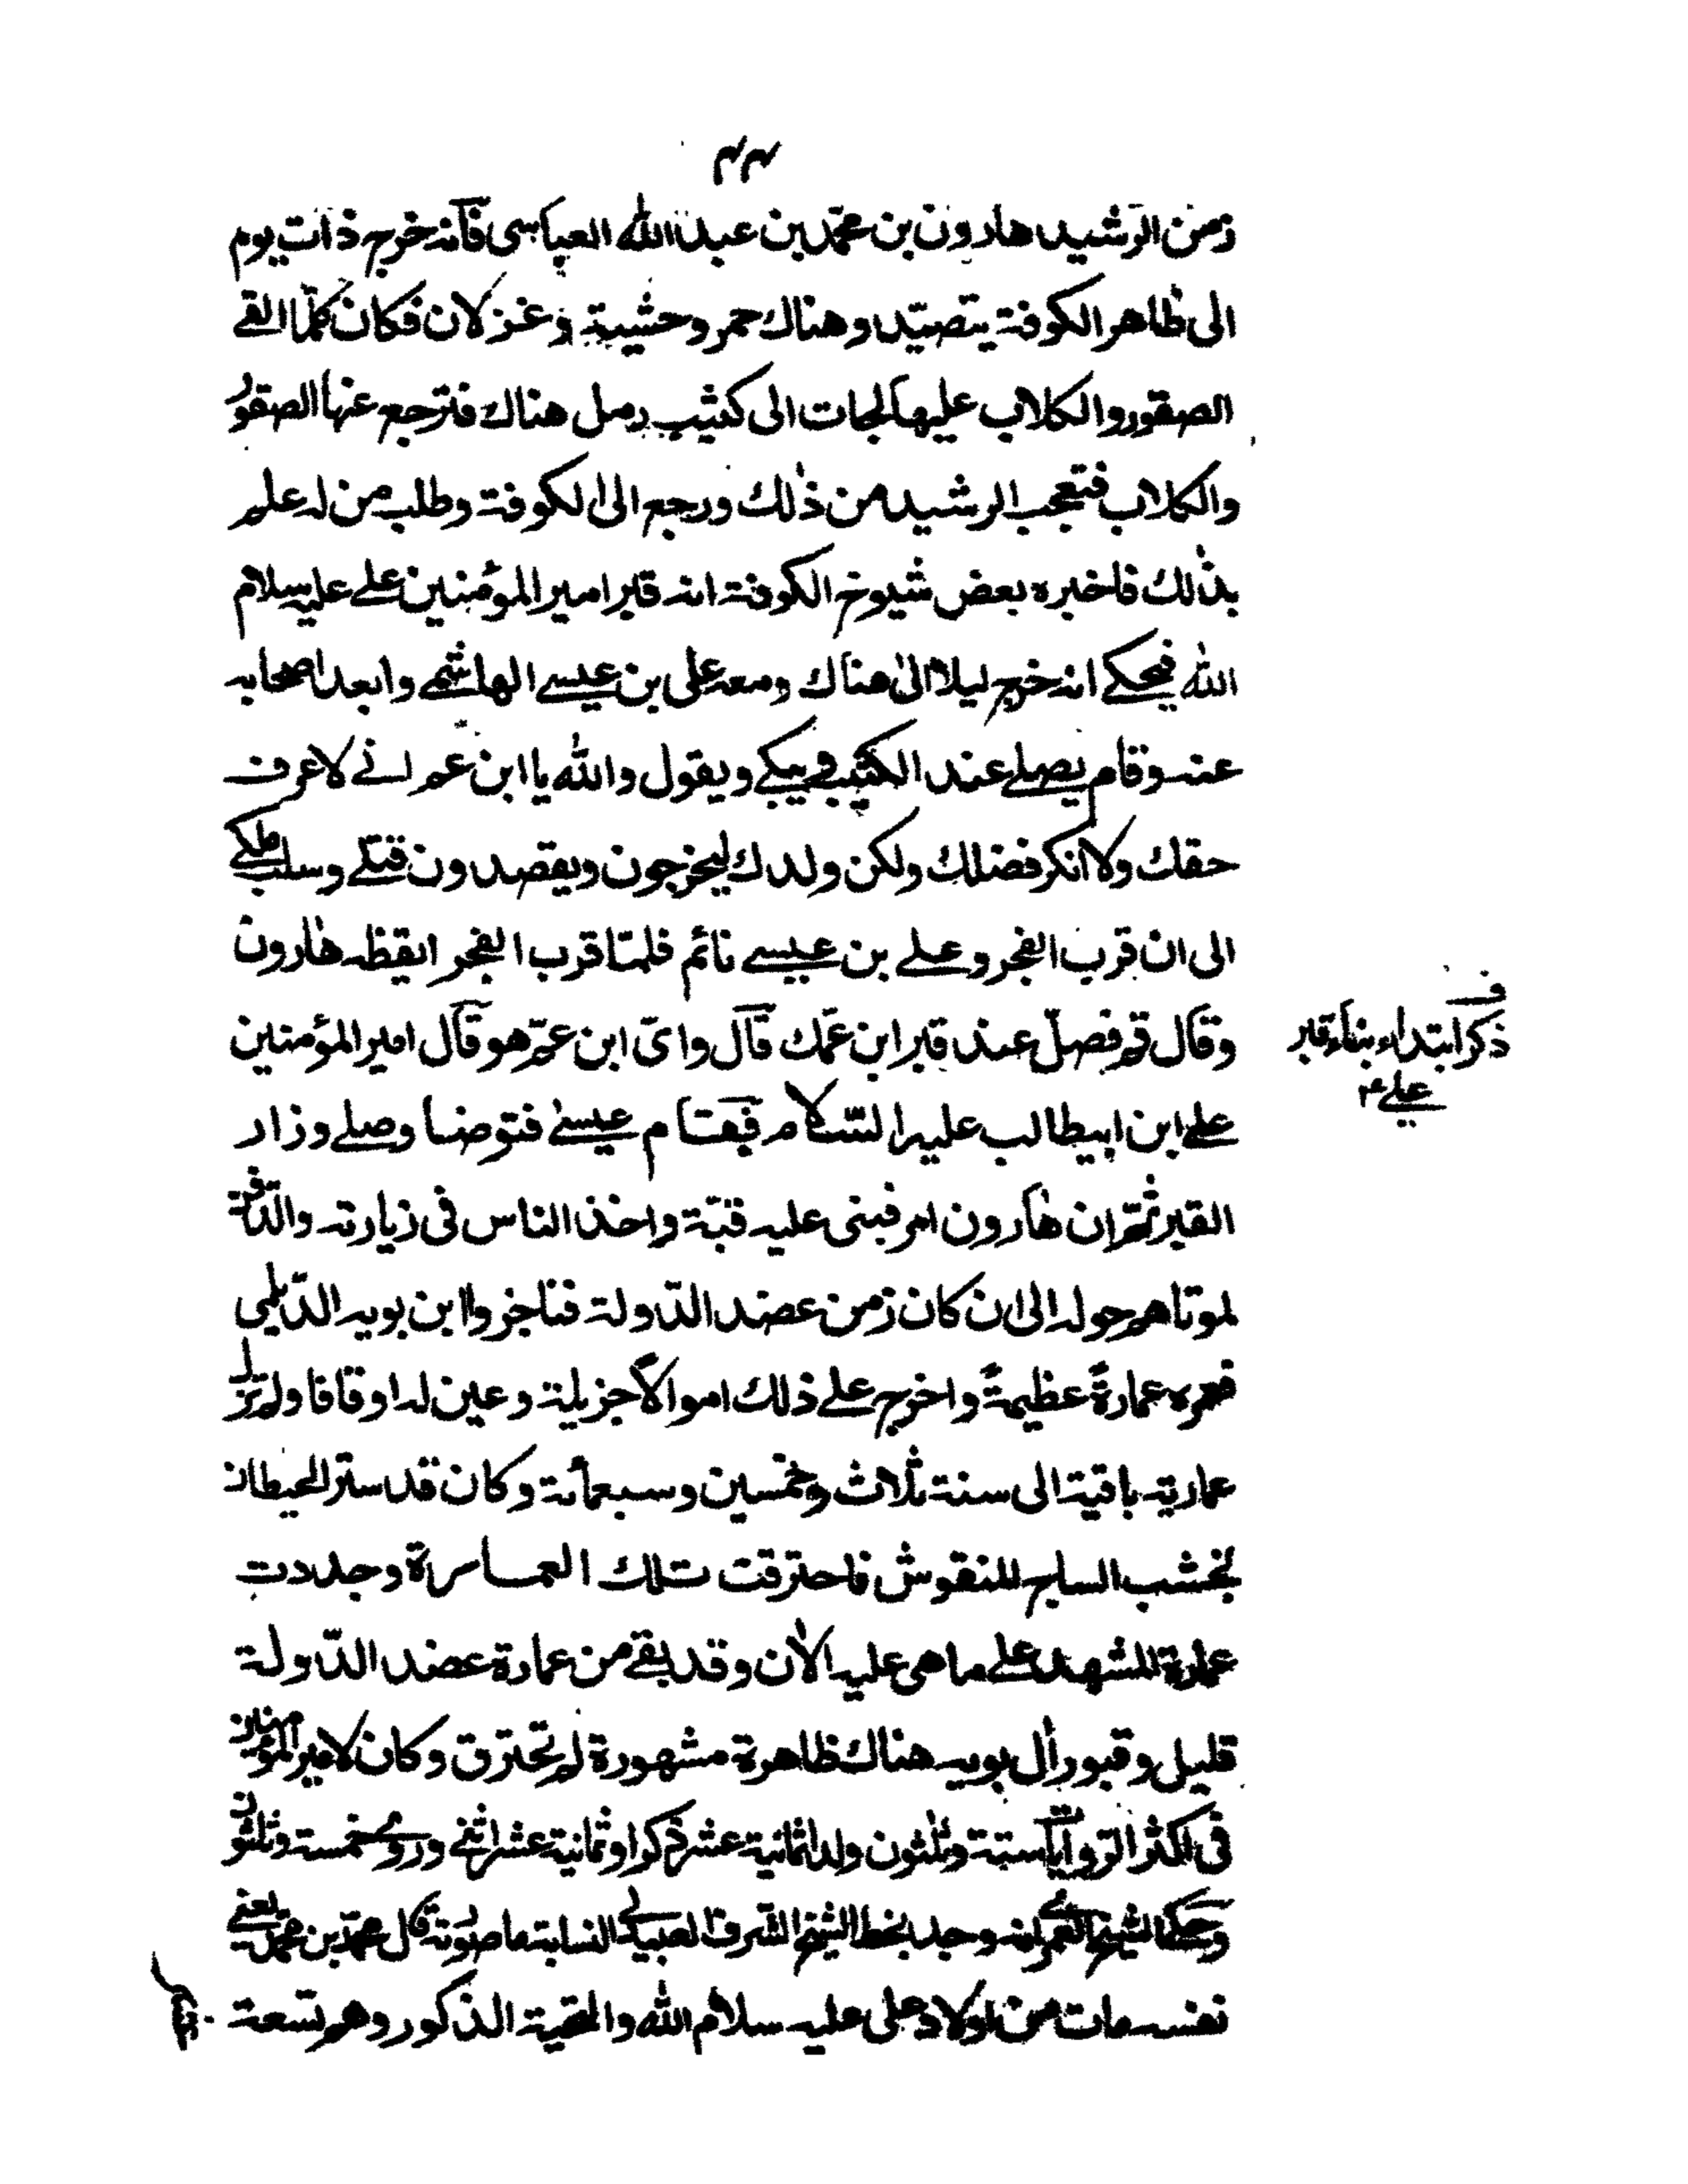 ٤٤
زمن الرشيد هارون بن محمّد بن عبد الله العباسى فانّه خرج ذات يوم
الى ظاهر الكوفة يتصيّد وهناك حمر وحشية وغزلان فكان كلّما القے
الصقور والكلاب عليها لجات الى كثيب رمل هناك فترجع عنها الصقور
والكلاب فتعجب الرشيد من ذلك ورجع الى الكوفة وطلب من له علم
بذلك فاخبره بعض شيوخ الكوفة انه قبر امير المؤمنين علے عليه سلام
الله فيحكے انه خرج ليلا الى هناك ومعه على بن عيسے الهاشمے وابعد اصحابه
عنه وقام يصلے عند الكثيب ويبكے ويقول والله يا ابن عم انے لاعرف
حقك ولا انكر فضلك ولكن ولدك ليخرجون ويقصدون قتلے وسلب ملكے
الى ان قرب الفجر وعلے بن عيسے نائم فلمّا قرب الفجر ايقظه هارون
وقال قم فصلّ عند قبر ابن عمّك قال واىّ ابن عمّ هو قال امير المؤمنين
علے ابن ابيطالب عليه السّلام فقام عيسىٰ فتوضا وصلے وزار
القبر ثمّ ان هارون امر فبنى عليه قبّة واخذ الناس فى زيارته والدّفن
لموتاهم حوله الى ان كان زمن عضد الدّولة فناخزوا ابن بويه الدّيلمى
فعمره عمارةً عظيمةً واخرج علے ذلك اموالاً جزيلة وعين له اوقافا ولم تزل
عمارته باقية الى سنة ثلاث وخمسين وسبعمائة وكان قد ستر الحيطان
بخشب الساج المنقوش فاحترقت تلك العمارة وجددت
عمارة المشهد علے ما هى عليه الآن وقد بقے من عمارة عضد الدّولة
قليل وقبور آل بويه هناك ظاهرة مشهورة لم تحترق وكان لامير المؤمنين
فى اكثر الروايات ستة وثلثون ولدا ثمانية عشر ذكرا وثمانية عشر انثے وروے خمسة وثلثون
وحكے الشيخ العمرے انه وجد بخط الشيخ الشّرف العبيدلے النسابة ما صورته قال محمّد بن محمّد يعنے
نفسه مات من اولاد على عليه سلام الله والتحية الذكور وهم تسعة
ف
ذكر ابتداء بناء قبر
علے ع